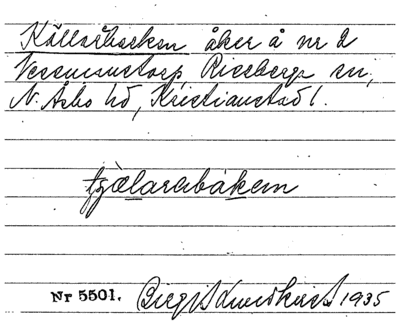 Källarbacken åker å nr 2
Vessmanstorp, Riseberga sn,
N. Åsbo hd, Kristianstad l.
tjälarabakem
Nr 5501. Birgit Lundkvist 1935